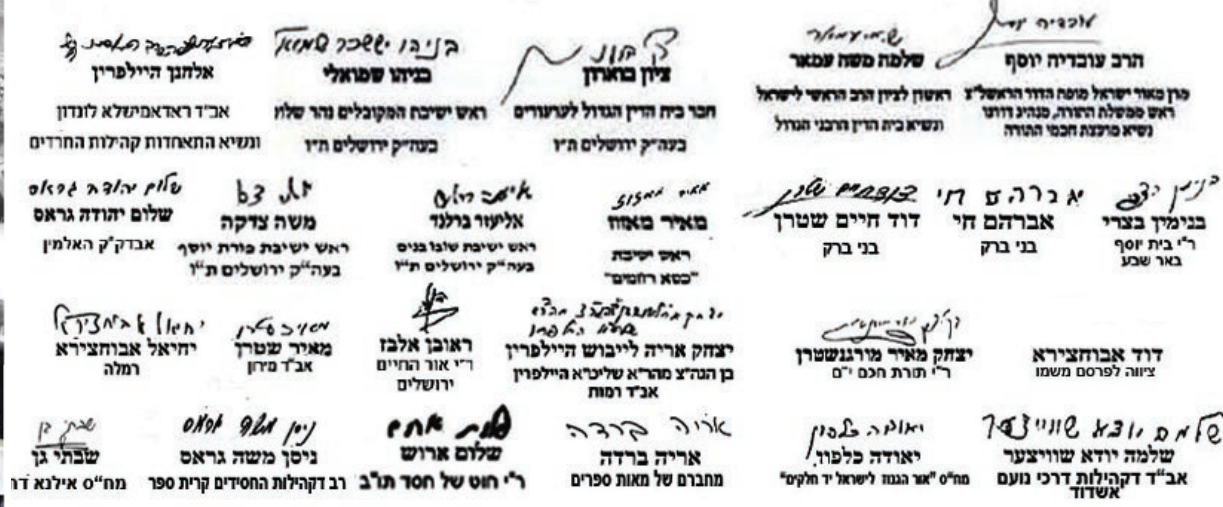 הרב עובדיה יוסף
מרן מאור ישראל מופת הדור הראשל"צ
ראש ממשלת התורה, מנהיג דורנו
נשיא מועצת חכמי התורה
שלמה משה עמאר
ראשון לציון הרב הראשי לישראל
ונשיא בית הדין הרבני הגדול
ציון בוארון
חבר בית הדין הגדול לערעורים
בעה"ק ירושלים ת"ו
בניהו יששכר שמואלי
בניהו שמואלי
ראש ישיבת המקובלים נהר שלום
בעה"ק ירושלים ת"ו
אלחנן היילפרין
אב"ד ראדאמישלא לונדון
ונשיא התאחדות קהילות החרדים
בנימין בצרי
ר"י בית יוסף
באר שבע
אברהם חי
אברהם חי
בני ברק
דוד חיים שטרן
בני ברק
מאיר מאזוז
ראש ישיבת
"כסא רחמים"
אליעזר ברלנד
ראש ישיבת שובו בנים
בעה"ק ירושלים ת"ו
משה צדקה
ראש ישיבת פורת יוסף
בעה"ק ירושלים ת"ו
שלום יהודה גראס
שלום יהודה גראס
אבדק"ק האלמין
דוד אבוחצירא
ציווה לפרסם משמו
יצחק מאיר מורגנשטרן
ר"י תורת חכם י"ם
יצחק אריה לייבוש היילפרין
בן הגה"צ מהר"א שליט"א היילפרין
אב"ד רמות
ראובן אלבז
ר"י אור החיים
ירושלים
מאיר שטרן
מאיר שטרן
אב"ד מירון
יחיאל אבוחצירא
יחיאל אבוחצירא
רמלה
שלמה יודא שווייצער
שלמה יודא שוויצער
אב"ד דקהילות דרכי נועם
אשדוד
יאודה כלפון
יאודה כלפון
מח"ס "אור הגנוז לישראל יד חלקים"
אריה ברדה
אריה ברדה
מחברם של מאות ספרים
שלום ארוש
ר"י חוט של חסד תו"ב
ניסן משה גראס
ניסן משה גראס
רב דקהילות החסידים קרית ספר
שבתי גן
מח"ס אילנא דח